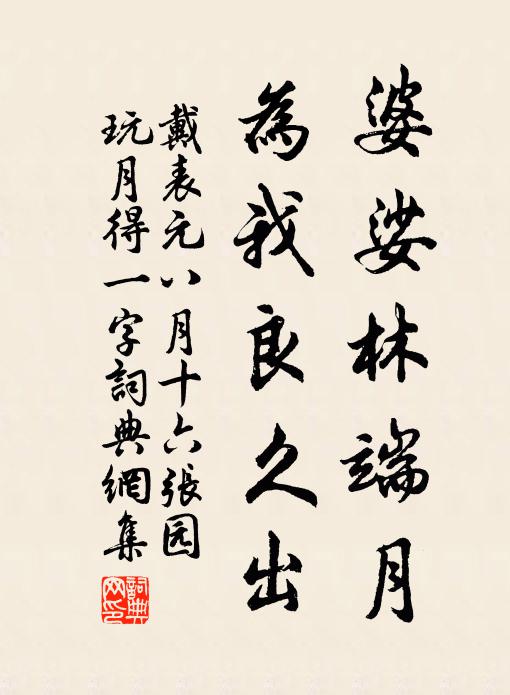 婆娑林端月
為我良久出
戴表元八月十六張园
玩月得一字詞典網集
詞典
网印